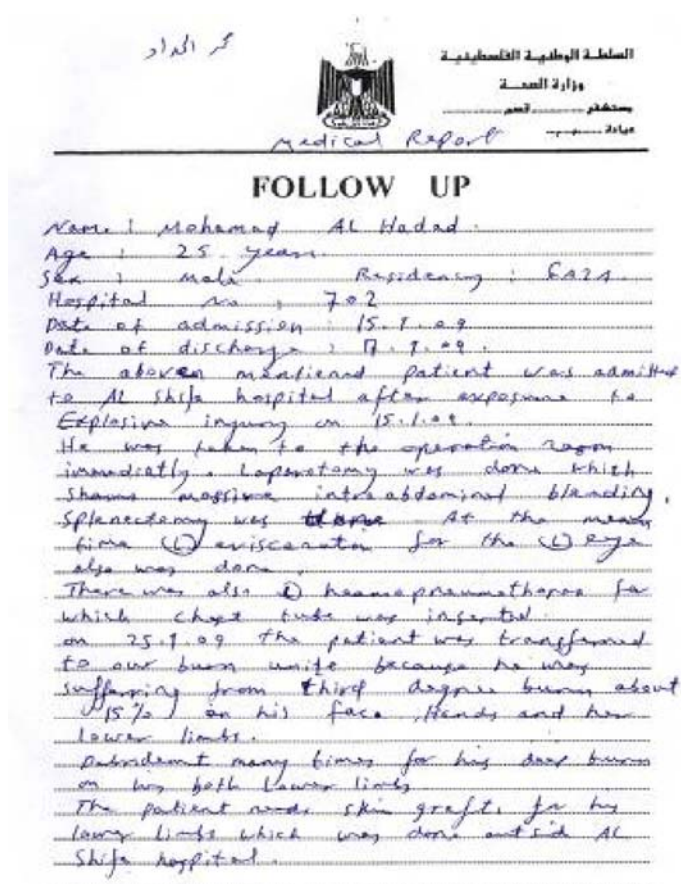 محمد الحداد
السلطة الوطنية الفلسطينية
وزارة الصحة
مستشفى ............ قسم ............
عيادة ............
Medical Report
FOLLOW UP
Name : Mohamad AL Hadad.
Age : 25 years.
Sex : Male. Residency : GAZA.
Hospital No : 702
Date of admission : 15.1.09
Date of discharge :
The above mentiened patient was admitted
to AL Shifa hospital after exposure to
Explosive injury on 15.1.09.
He was taken to the operation room
immediatly. Laparotomy was done which
shows massive intraabdominal bleeding,
Splenectomy was done At the mean
time (L) evisceration for the (L) eye
also was done.
There was also heamopneumothorax for
which chest tube was inserted.
on 25.1.09 the patient was transferred
to our burn unite because he was
suffering from third degree burn about
(15%) on his face, Hands and her
Lower limbs.
Debridemt many times for his deep burn
on his both Lower limbs
The patient needs skin grafts for his
lower limbs which was done outsid AL
Shifa hospital.